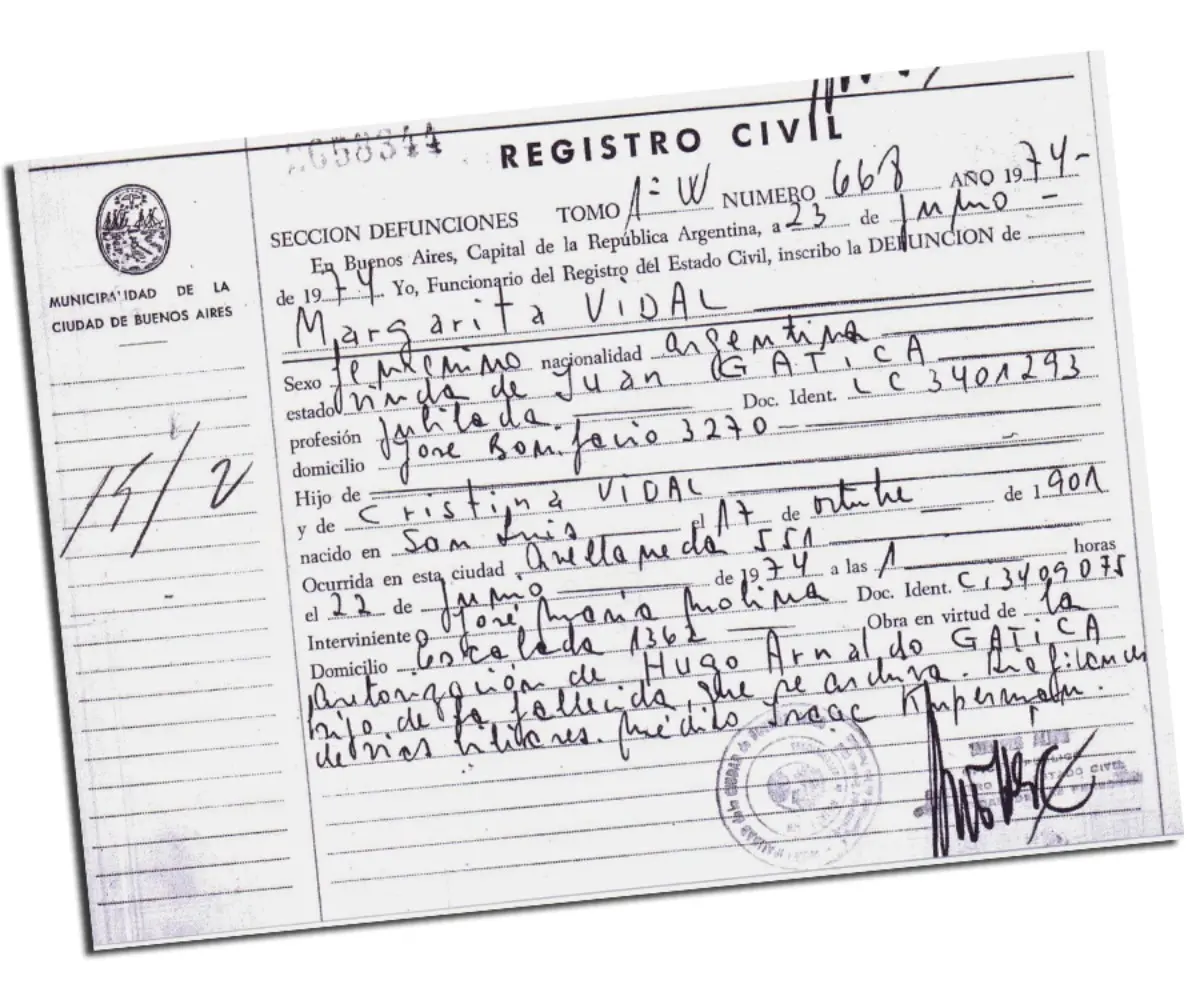 658344
REGISTRO CIVIL
SECCION DEFUNCIONES TOMO 1º W NUMERO 668 AÑO 1974-
En Buenos Aires, Capital de la República Argentina, a 23 de junio -
de 1974 Yo, Funcionario del Registro del Estado Civil, inscribo la DEFUNCION de
Margarita VIDAL
Sexo femenino nacionalidad argentina
estado viuda de Juan GATICA
profesión jubilada. Doc. Ident. LC 3401293
domicilio José Bonifacio 3270 -
Hijo de
y de Cristina VIDAL
nacido en San Luis el 17 de octubre de 1901
Ocurrida en esta ciudad Avellaneda 551
el 22 de junio de 1974 a las 1 horas
Interviniente José María Molina Doc. Ident. CI 3409075
Domicilio Escalada 1362 Obra en virtud de la
autorización de Hugo Arnaldo GATICA
hijo de la fallecida, que se archiva.
de vias biliares. Médico Isaac
MUNICIPALIDAD DE LA
CIUDAD DE BUENOS AIRES
15/2